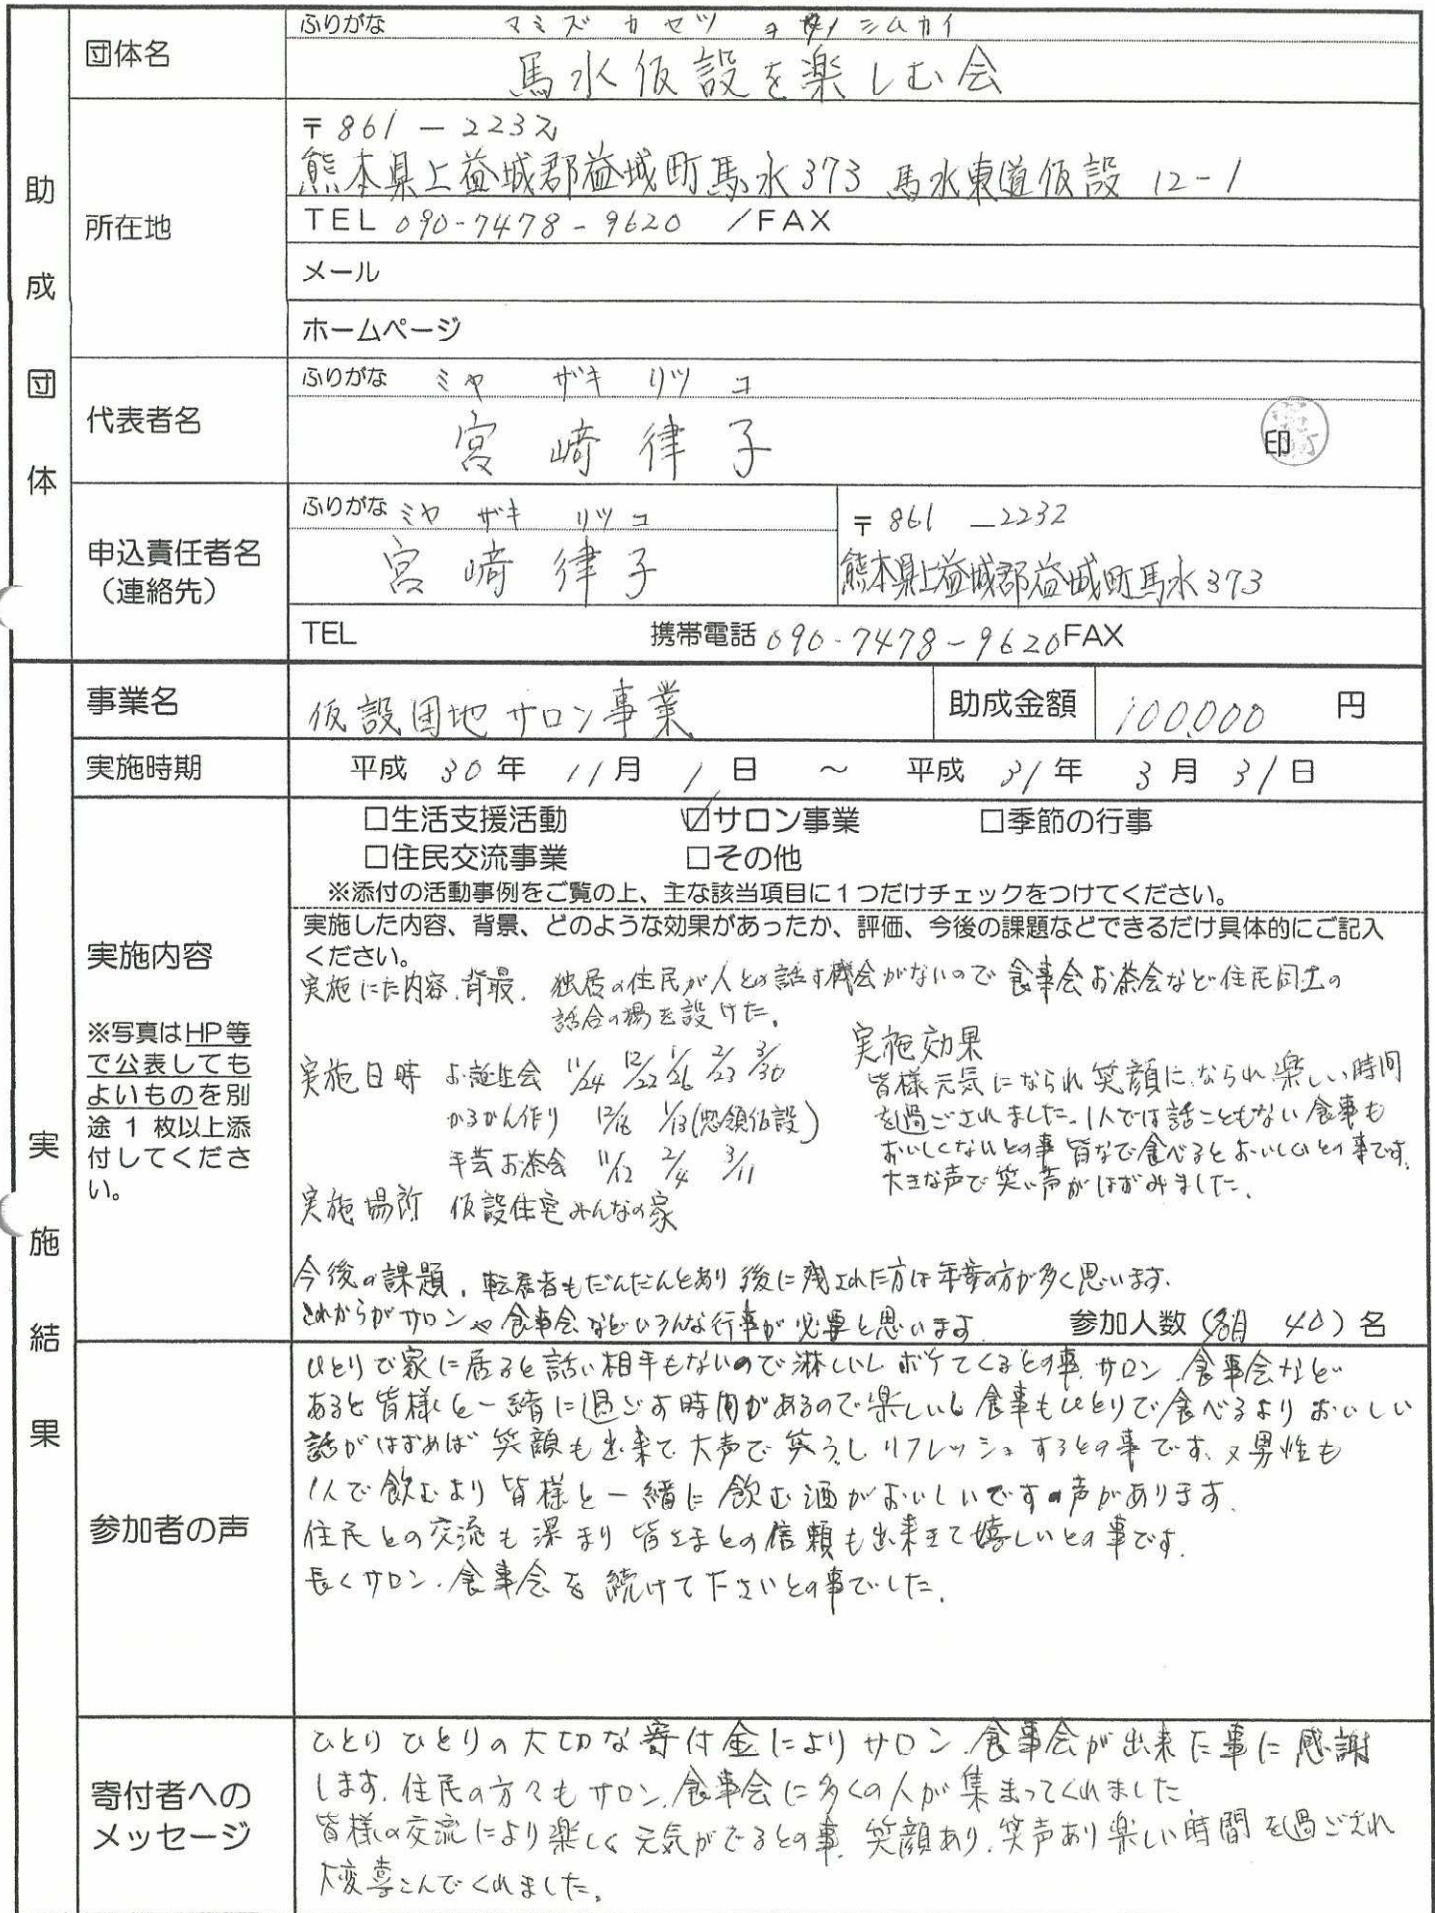 助成団体
団体名
ふりがな マミズカセツヲタノシムカイ
馬水仮設を楽しむ会
所在地
〒861-2232
熊本県上益城郡益城町馬水373 馬水東道仮設 12-1
TEL 090-7478-9620 /FAX
メール
ホームページ
代表者名
ふりがな ミヤ ザキ リツ コ
宮﨑律子 印
申込責任者名
(連絡先)
ふりがな ミヤ ザキ リツ コ
宮﨑律子
〒861-2232
熊本県上益城郡益城町馬水373
TEL 携帯電話 090-7478-9620 FAX
実施結果
事業名 仮設団地サロン事業 助成金額 100,000 円
実施時期 平成 30年 11月 1日 ~ 平成 31年 3月 31日
実施内容
※写真はHP等
で公表しても
よいものを別
途1枚以上添
付してくださ
い。
□生活支援活動 ☑サロン事業 □季節の行事
□住民交流事業 □その他
※添付の活動事例をご覧の上、主な該当項目に1つだけチェックをつけてください。
実施した内容、背景、どのような効果があったか、評価、今後の課題などできるだけ具体的にご記入
ください。
実施にた内容.背景. 独居の住民が人との話す機会がないので食事会お茶会など住民同士の
話合の場を設けた.
実施日時 お誕生会 11/24 12/22 1/26 2/23 3/30
かるかん作り 12/18 1/13(惣領仮設)
手芸お茶会 11/12 2/4 3/11
実施場所 仮設住宅みんなの家
実施効果
皆様元気になられ笑顔に、なられ楽しい時間
を過ごされました.1人では話こともない食事も
おいしくないとの事皆なで食べるとおいしいとの事です.
大きな声で笑い声がはずみました.
今後の課題.転居者もだんだんとあり後に残された方は年輩の方が多く思います.
これからがサロンや食事会などいろんな行事が必要と思います.
参加人数(各月 40)名
参加者の声
ひとりで家に居ると話い相手もないので淋しいしボケてくるとの事.サロン.食事会など
あると皆様と一緒に過ごす時間があるので楽しいし食事もひとりで食べるよりおいしい
話がはずめば笑顔も出来て大声で笑うしリフレッシュするとの事です.又男性も
1人で飲むより皆様と一緒に飲む酒がおいしいですの声があります.
住民との交流も深まり皆さまとの信頼も出来きて嬉しいとの事です.
長くサロン.食事会を続けて下さいとの事でした.
寄付者への
メッセージ
ひとりひとりの大切な寄付金によりサロン.食事会が出来た事に感謝
します.住民の方々もサロン.食事会に多くの人が集まってくれました
皆様の交流により楽しく元気がでるとの事.笑顔あり.笑声あり楽しい時間を過ごされ
大変喜こんでくれました.